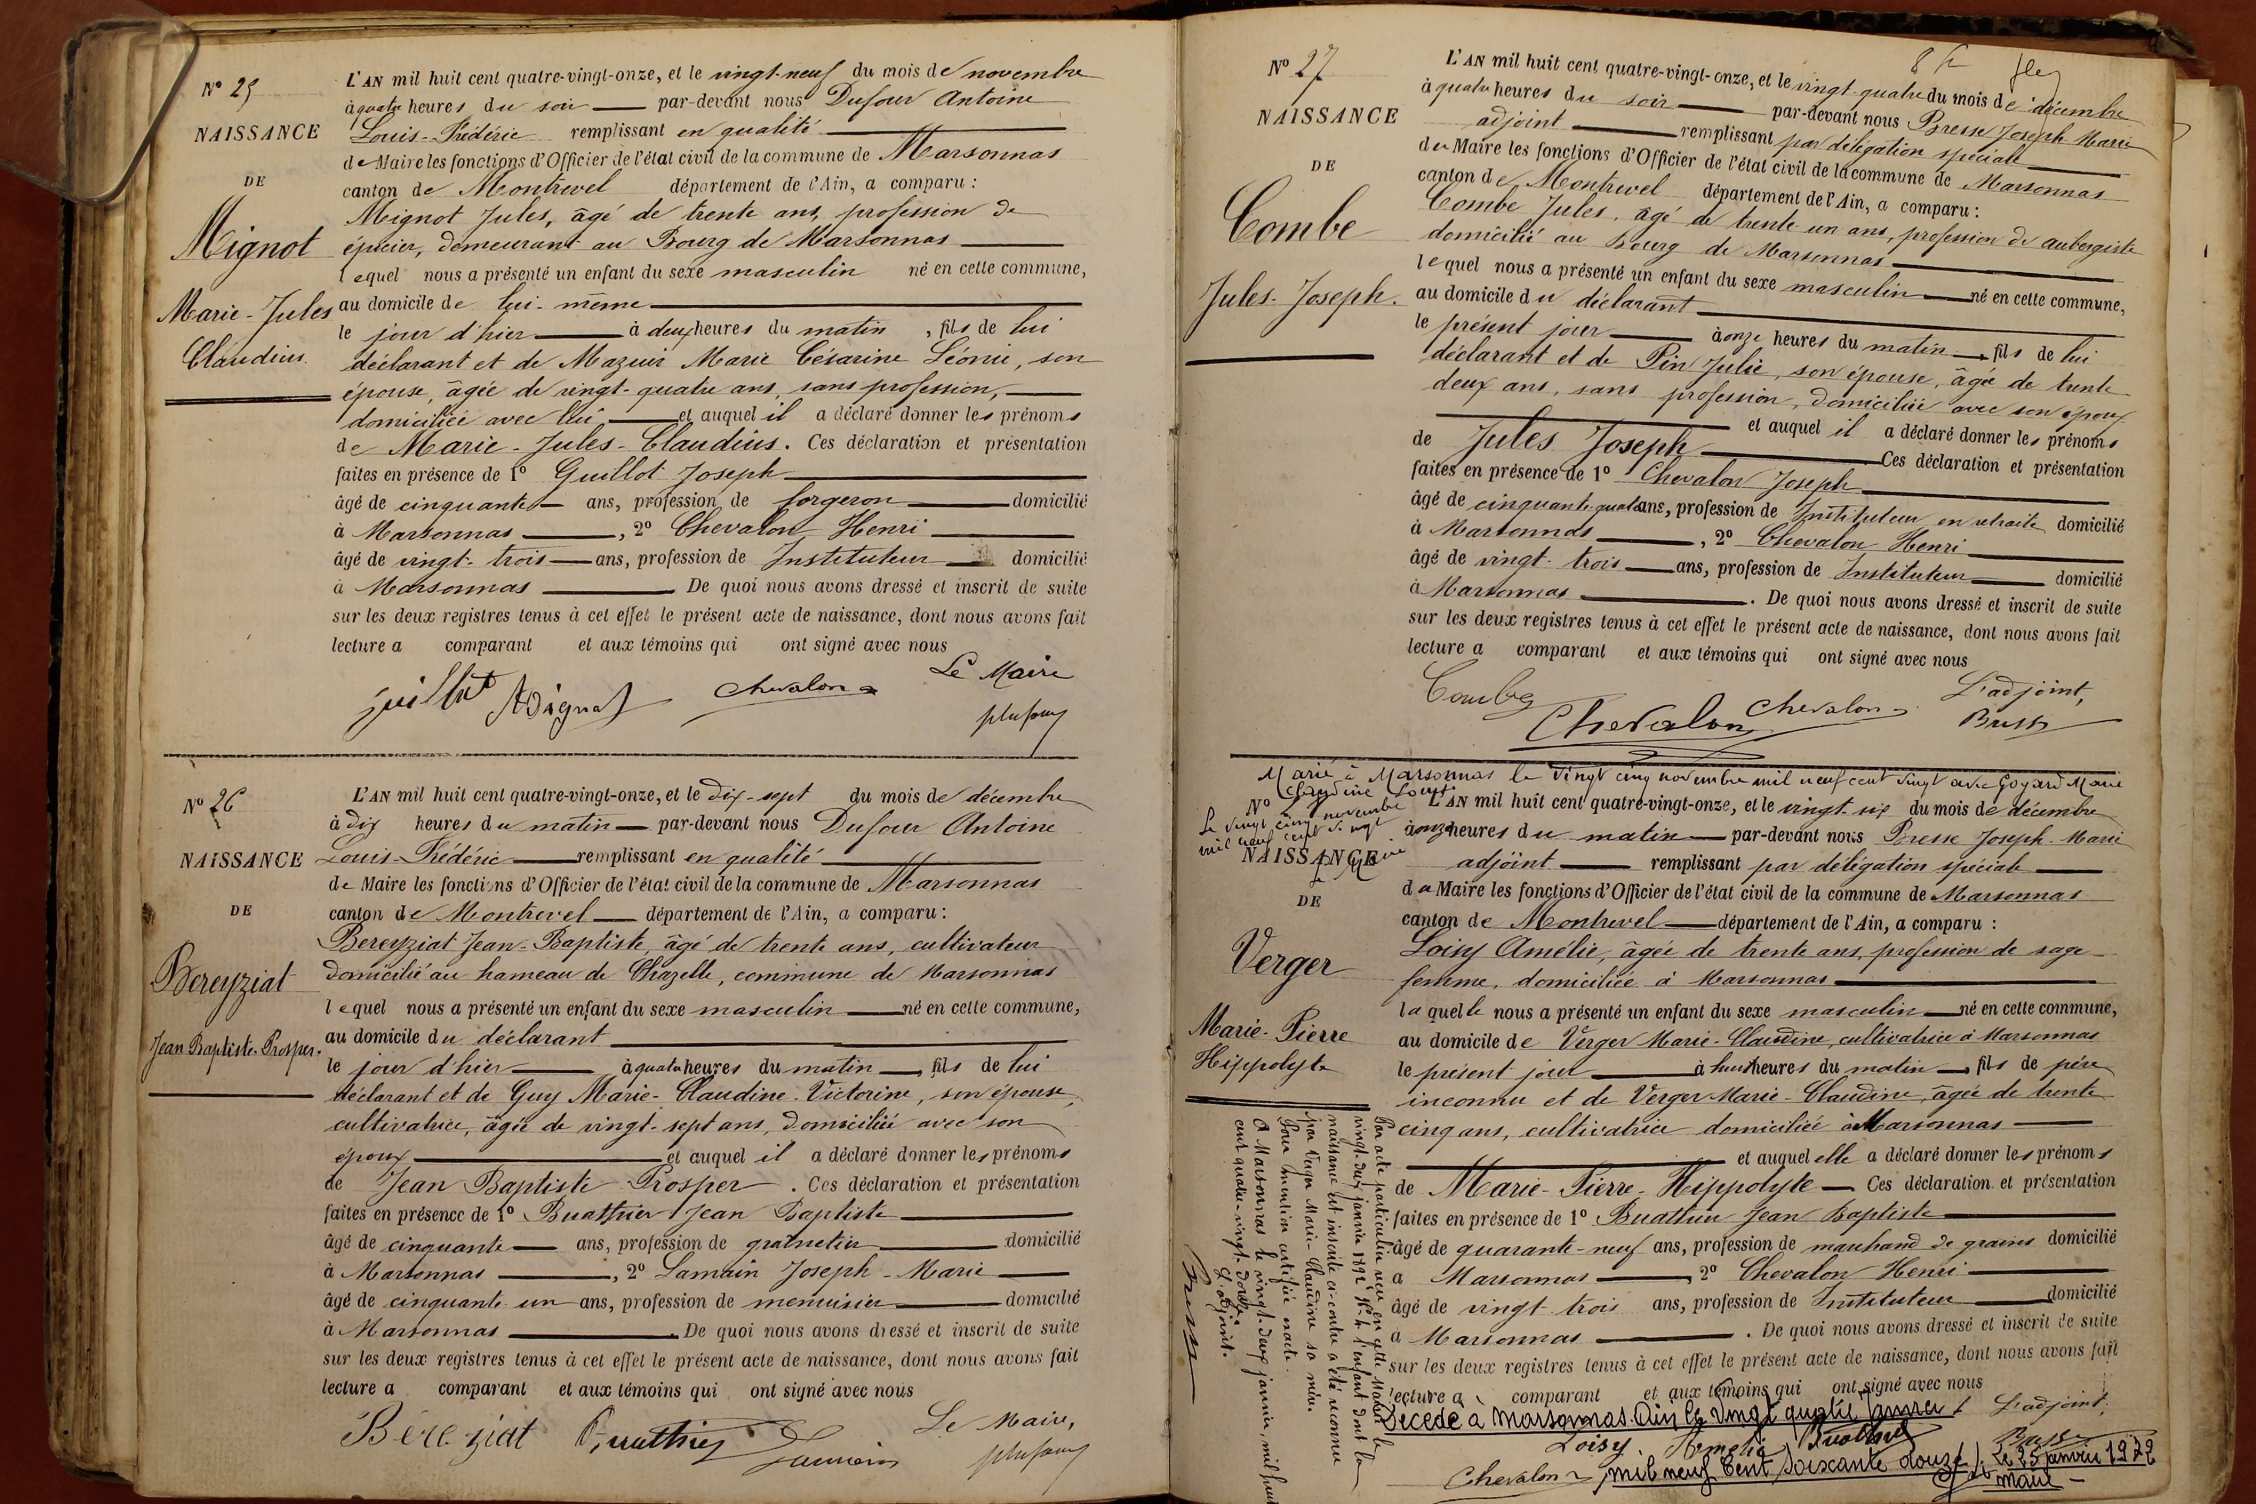 N° 25
NAISSANCE
DE
Mignot
Marie-Jules
Claudius
L'AN mil huit cent quatre-vingt-onze, et le vingt-neuf du mois de novembre
à quatre heures du soir par-devant nous Dufour Antoine
Louis-Frédéric remplissant en qualité
de Maire les fonctions d'Officier de l'état civil de la commune de Marsonnas
canton de Montrevel département de l'Ain, a comparu :
Mignot Jules, âgé de trente ans, profession de
épicier, demeurant au Bourg de Marsonnas
lequel nous a présenté un enfant du sexe masculin né en cette commune,
au domicile de lui-même
le jour d'hier à deux heures du matin, fils de lui
déclarant et de Mazuir Marie Césarine Léonie, son
épouse, âgée de vingt-quatre ans, sans profession,
domiciliée avec lui et auquel il a déclaré donner les prénoms
de Marie-Jules-Claudius. Ces déclaration et présentation
faites en présence de 1° Guillot Joseph
âgé de cinquante ans, profession de forgeron domicilié
à Marsonnas, 2° Chevalon Henri
âgé de vingt-trois ans, profession de Instituteur domicilié
à Marsonnas De quoi nous avons dressé et inscrit de suite
sur les deux registres tenus à cet effet le présent acte de naissance, dont nous avons fait
lecture a comparant et aux témoins qui ont signé avec nous
Le Maire
guillot Mignot Chevalon
N° 26
NAISSANCE
DE
Bereyziat
Jean Baptiste-Prosper.
L'AN mil huit cent quatre-vingt-onze, et le dix-sept du mois de décembre
à dix heures du matin par-devant nous Dufour Antoine
Louis-Frédéric remplissant en qualité
de Maire les fonctions d'Officier de l'état civil de la commune de Marsonnas
canton de Montrevel département de l'Ain, a comparu :
Bereyziat Jean-Baptiste, âgé de trente ans, cultivateur
domicilié au hameau de Chazelle, commune de Marsonnas
lequel nous a présenté un enfant du sexe masculin né en cette commune,
au domicile du déclarant
le jour d'hier à quatre heures du matin, fils de lui
déclarant et de Guy Marie-Claudine-Victorine, son épouse,
cultivatrice, âgée de vingt-sept ans, domiciliée avec son
époux et auquel il a déclaré donner les prénoms
de Jean Baptiste Prosper. Ces déclaration et présentation
faites en présence de 1° Buathier Jean Baptiste
âgé de cinquante ans, profession de grainetier domicilié
à Marsonnas, 2° Jamain Joseph-Marie
âgé de cinquante un ans, profession de menuisier domicilié
à Marsonnas. De quoi nous avons dressé et inscrit de suite
sur les deux registres tenus à cet effet le présent acte de naissance, dont nous avons fait
lecture a comparant et aux témoins qui ont signé avec nous
Le Maire,
Béreyziat Buathier Jamain
N° 27
NAISSANCE
DE
Combe
Jules-Joseph.
L'AN mil huit cent quatre-vingt-onze, et le vingt-quatre du mois de décembre
à quatre heures du soir par-devant nous Bresse Joseph Marie
adjoint remplissant par délégation spéciale
du Maire les fonctions d'Officier de l'état civil de la commune de Marsonnas
canton de Montrevel département de l'Ain, a comparu :
Combe Jules, âgé de trente un ans, profession de aubergiste
domicilié au bourg de Marsonnas
lequel nous a présenté un enfant du sexe masculin né en cette commune,
au domicile du déclarant
le présent jour à onze heures du matin, fils de lui
déclarant et de Pin Julie, son épouse, âgée de trente
deux ans, sans profession, domiciliée avec son époux
et auquel il a déclaré donner les prénoms
de Jules Joseph Ces déclaration et présentation
faites en présence de 1° Chevalon Joseph
âgé de cinquante quatre ans, profession de Instituteur en retraite domicilié
à Marsonnas, 2° Chevalon Henri
âgé de vingt-trois ans, profession de Instituteur domicilié
à Marsonnas. De quoi nous avons dressé et inscrit de suite
sur les deux registres tenus à cet effet le présent acte de naissance, dont nous avons fait
lecture a comparant et aux témoins qui ont signé avec nous
Combe Chevalon Chevalon L'adjoint,
Bresse
Marié à Marsonnas le vingt cinq novembre mil neuf cent vingt avec Goyard Marie
Claudine Louise
Le vingt cinq novembre
mil neuf cent vingt
N°
NAISSANCE
DE
Verger
Marie-Pierre
Hippolyte
L'AN mil huit cent quatre-vingt-onze, et le vingt-six du mois de décembre
à onze heures du matin par-devant nous Bresse Joseph-Marie
adjoint remplissant par délégation spéciale
du Maire les fonctions d'Officier de l'état civil de la commune de Marsonnas
canton de Montrevel département de l'Ain, a comparu :
Loisy Amélie, âgée de trente ans, profession de sage
femme, domiciliée à Marsonnas
laquelle nous a présenté un enfant du sexe masculin né en cette commune,
au domicile de Verger Marie-Claudine, cultivatrice à Marsonnas
le présent jour à huit heures du matin, fils de père
inconnu et de Verger Marie-Claudine, âgée de trente
cinq ans, cultivatrice domiciliée à Marsonnas
et auquel elle a déclaré donner les prénoms
de Marie-Pierre-Hippolyte Ces déclaration et présentation
faites en présence de 1° Buathier Jean Baptiste
âgé de quarante-neuf ans, profession de marchand de grains domicilié
à Marsonnas, 2° Chevalon Henri
âgé de vingt-trois ans, profession de Instituteur domicilié
à Marsonnas. De quoi nous avons dressé et inscrit de suite
sur les deux registres tenus à cet effet le présent acte de naissance, dont nous avons fait
lecture a comparant et aux témoins qui ont signé avec nous
L'adjoint,
Décédé à Marsonnas Ain le vingt quatre Janvier
Loisy Amélie Buathier Bresse
Chevalon mil neuf cent soixante douze. Le 25 janvier 1972
maire
Par acte particulier reçu en cette Mairie le
vingt-deux janvier 1892, l'enfant dont la
naissance est inscrite ci-contre a été reconnu
par Verger Marie-Claudine sa mère.
Pour mention certifiée exacte.
A Marsonnas le vingt-deux janvier, mil huit
cent quatre-vingt-douze
L'adjoint.
Bresse